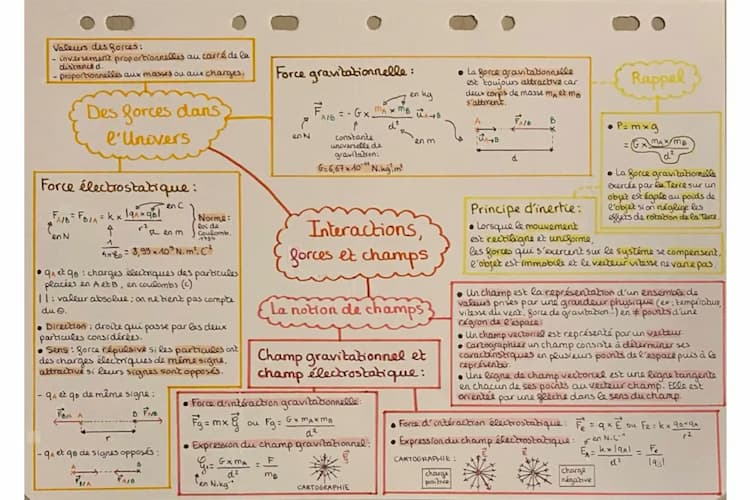 Valeurs des forces :
- inversement proportionnelles au carré de la
distance d.
- proportionnelles aux masses ou aux charges.
Des forces dans
l'Univers
Force gravitationnelle :
F A/B = - G × mA × mB / d² u A→B
en kg
en N
en m
constante
universelle de
gravitation:
G = 6,67 × 10⁻¹¹ N.kg².m²
• La force gravitationnelle
est toujours attractive car
deux corps de masse mA et mB
s'attirent.
A F A/B B
u A→B
d
Rappel
• P = m × g
= G × mA × mB / d²
• La force gravitationnelle
exercée par la Terre sur un
objet est égale au poids de
l'objet si on néglige les
effets de rotation de la Terre.
Force électrostatique :
F A/B = F B/A = k × |qA × qB| / r²
en C
en N
en m
1 / 4πε0 = 8,99 × 10⁹ N.m².C⁻²
Norme :
loi de
Coulomb.
• qA et qB : charges électriques des particules
placées en A et B, en coulombs (C)
| | : valeur absolue : on ne tient pas compte
du ⊖.
• Direction : droite qui passe par les deux
particules considérées.
• Sens : force répulsive si les particules ont
des charges électriques de même signe,
attractive si leurs signes sont opposés.
- qA et qB de même signe :
F B/A A B F A/B
r
- qA et qB de signes opposés :
A B
F B/A F A/B
Interactions,
forces et champs
Principe d'inertie :
• Lorsque le mouvement
est rectiligne et uniforme,
les forces qui s'exercent sur le système se compensent.
L'objet est immobile et le vecteur vitesse ne varie pas.
La notion de champs
• Un champ est la représentation d'un ensemble de
valeurs prises par une grandeur physique (ex : température,
vitesse du vent, force de gravitation...) en ≠ points d'une
région de l'espace.
• Un champ vectoriel est représenté par un vecteur
• Cartographier un champ consiste à déterminer ses
caractéristiques en plusieurs points de l'espace puis à le
représenter.
• Une ligne de champ vectoriel est une ligne tangente
en chacun de ses points au vecteur champ. Elle est
orientée par une flèche dans le sens du champ.
Champ gravitationnel et
champ électrostatique :
• Force d'intéraction gravitationnelle :
Fg = m × G ou Fg = G × mA × mB / d²
• Expression du champ gravitationnel :
G = G × mA / d² = F / mB
en N.kg⁻¹
CARTOGRAPHIE
• Force d'intéraction électrostatique : Fe = q × E ou Fe = k × qA × qB / r²
• Expression du champ électrostatique :
en N.C⁻¹
EA = k × |qA| / d² = Fe / |qB|
CARTOGRAPHIE :
charge
positive
charge
négative